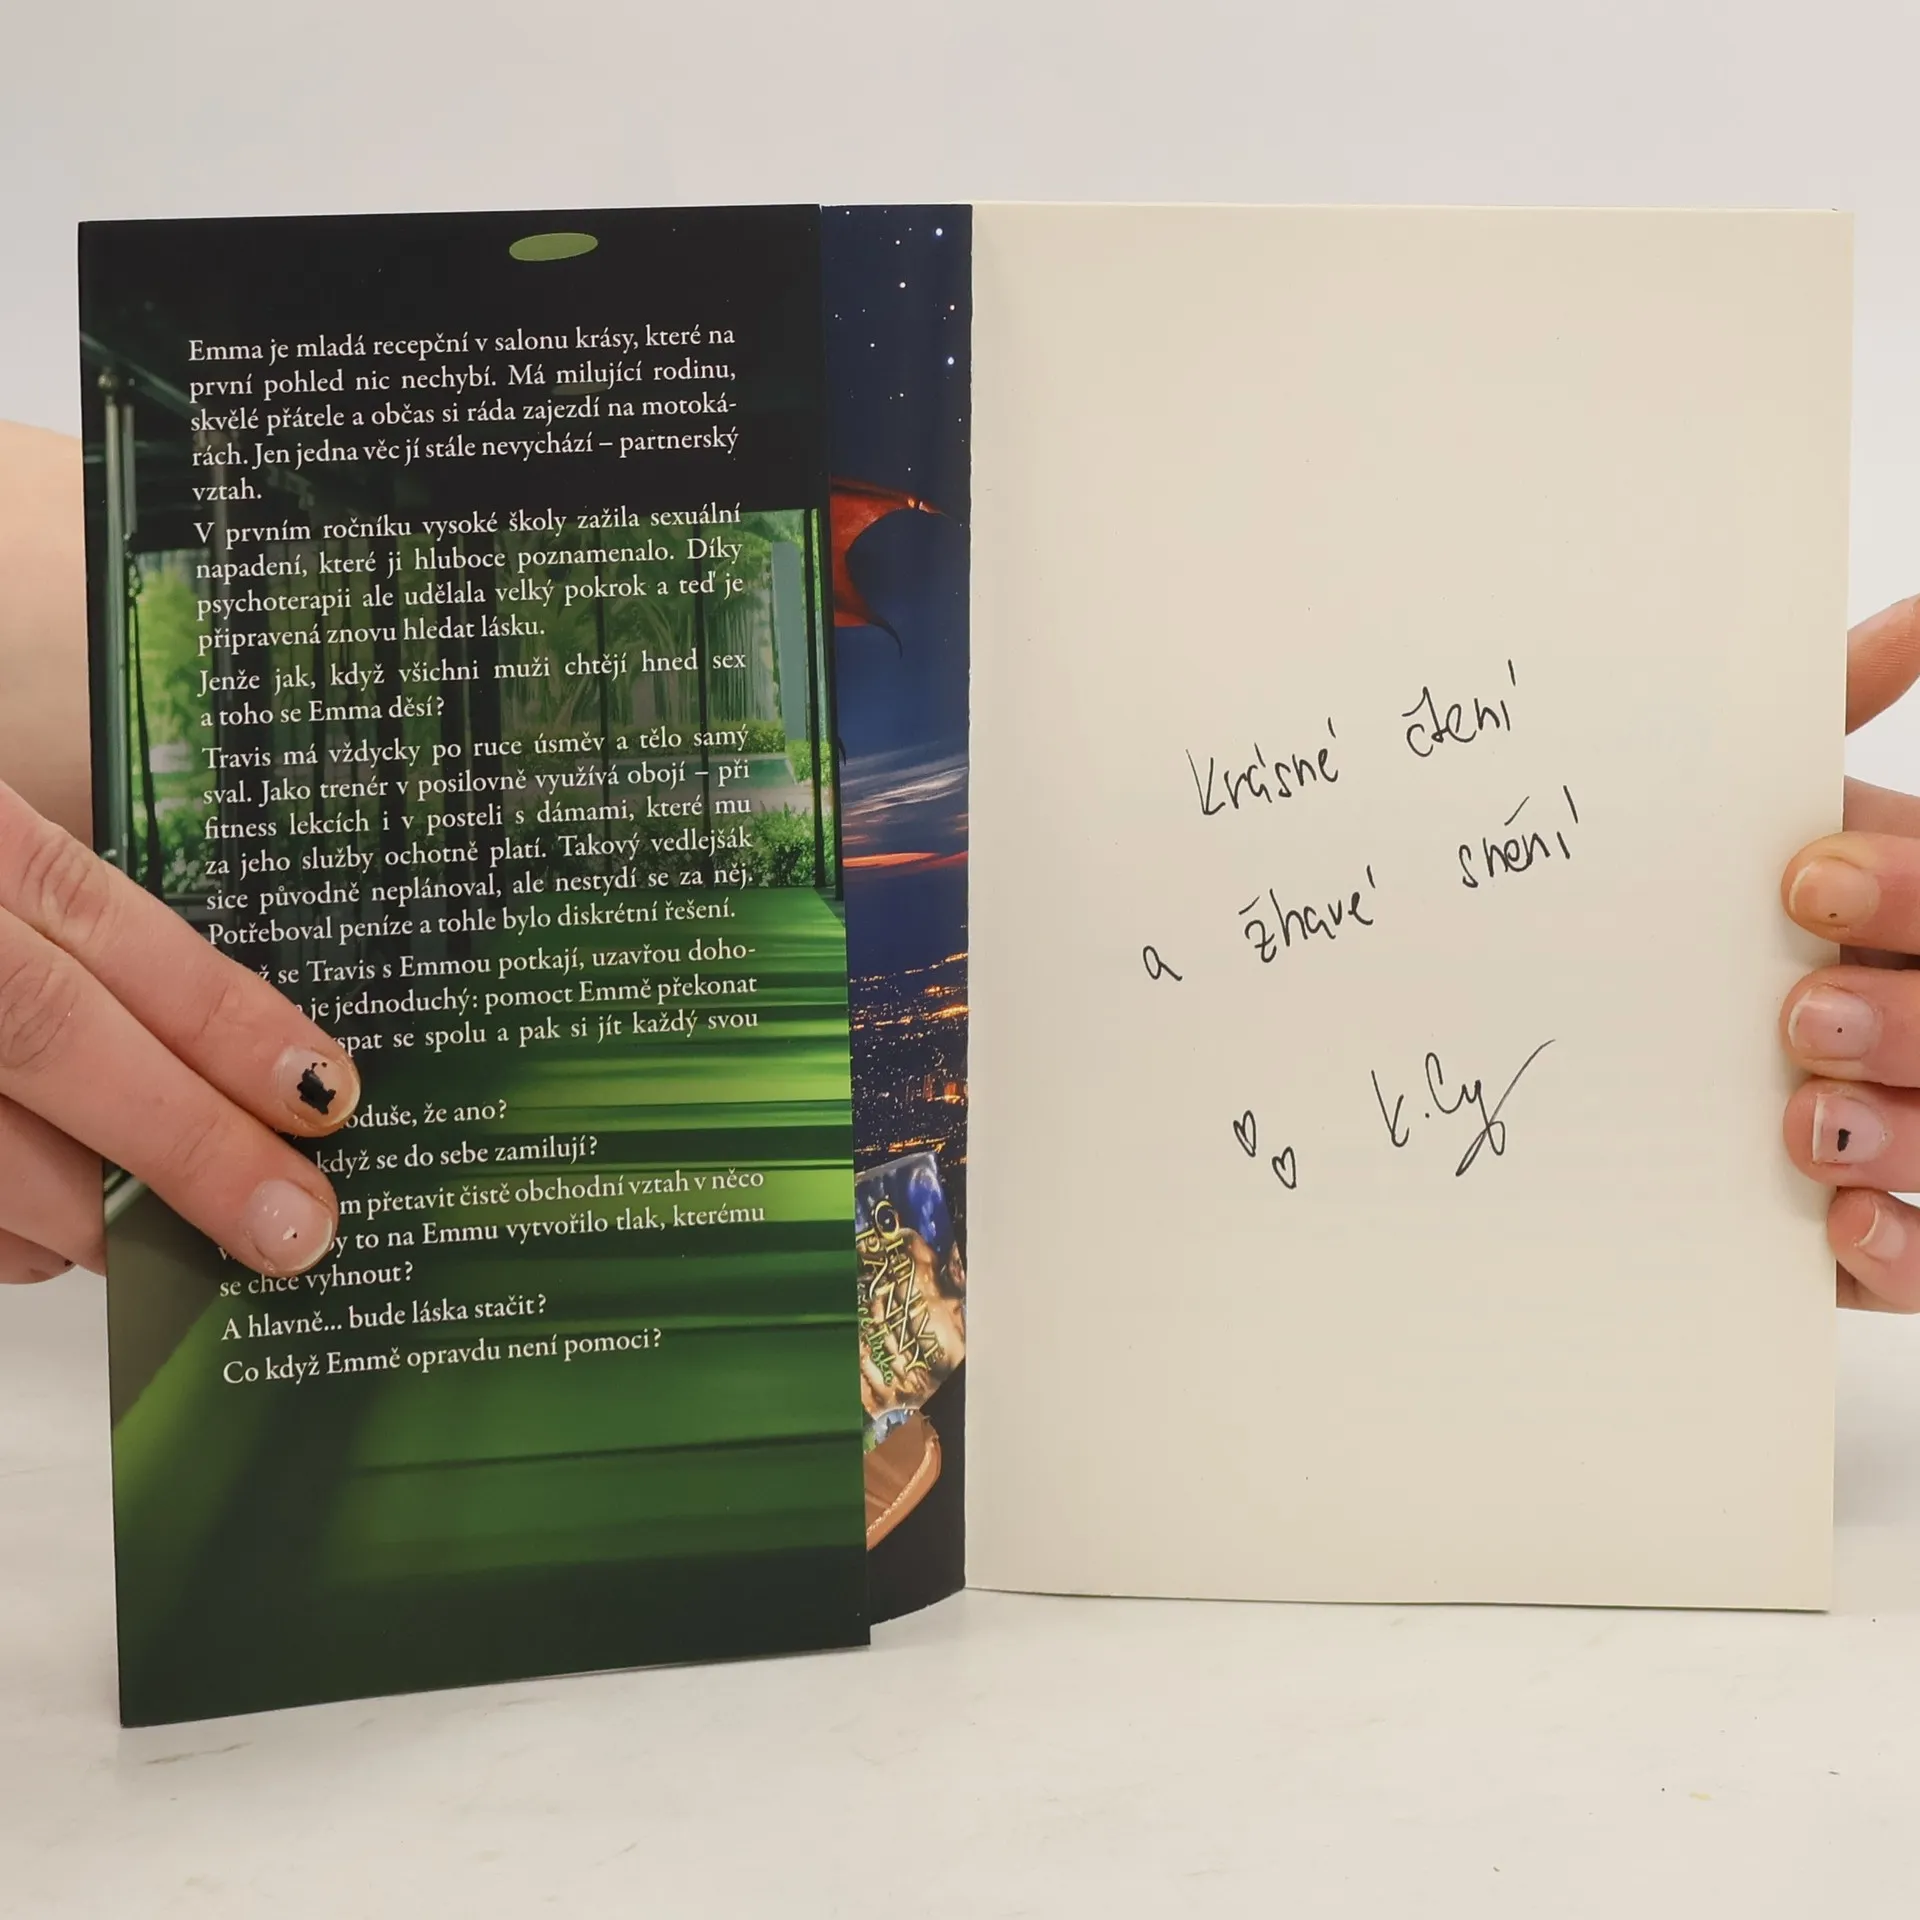 Emma je mladá recepční v salonu krásy, které na
první pohled nic nechybí. Má milující rodinu,
skvělé přátele a občas si ráda zajezdí na motoká-
rách. Jen jedna věc jí stále nevychází – partnerský
vztah.
V prvním ročníku vysoké školy zažila sexuální
napadení, které ji hluboce poznamenalo. Díky
psychoterapii ale udělala velký pokrok a teď je
připravená znovu hledat lásku.
Jenže jak, když všichni muži chtějí hned sex
a toho se Emma děsí?
Travis má vždycky po ruce úsměv a tělo samý
sval. Jako trenér v posilovně využívá obojí – při
fitness lekcích i v posteli s dámami, které mu
za jeho služby ochotně platí. Takový vedlejšák
sice původně neplánoval, ale nestydí se za něj.
Potřeboval peníze a tohle bylo diskrétní řešení.
se Travis s Emmou potkají, uzavřou doho-
je jednoduchý: pomoct Emmě překonat
spat se spolu a pak si jít každý svou
oduše, že ano?
když se do sebe zamilují?
m přetavit čistě obchodní vztah v něco
y to na Emmu vytvořilo tlak, kterému
se chce vyhnout?
A hlavně... bude láska stačit?
Co když Emmě opravdu není pomoci?
OHNIVÉ
PÁNVE
Krásné čtení
a žhavé snění
K. Cy